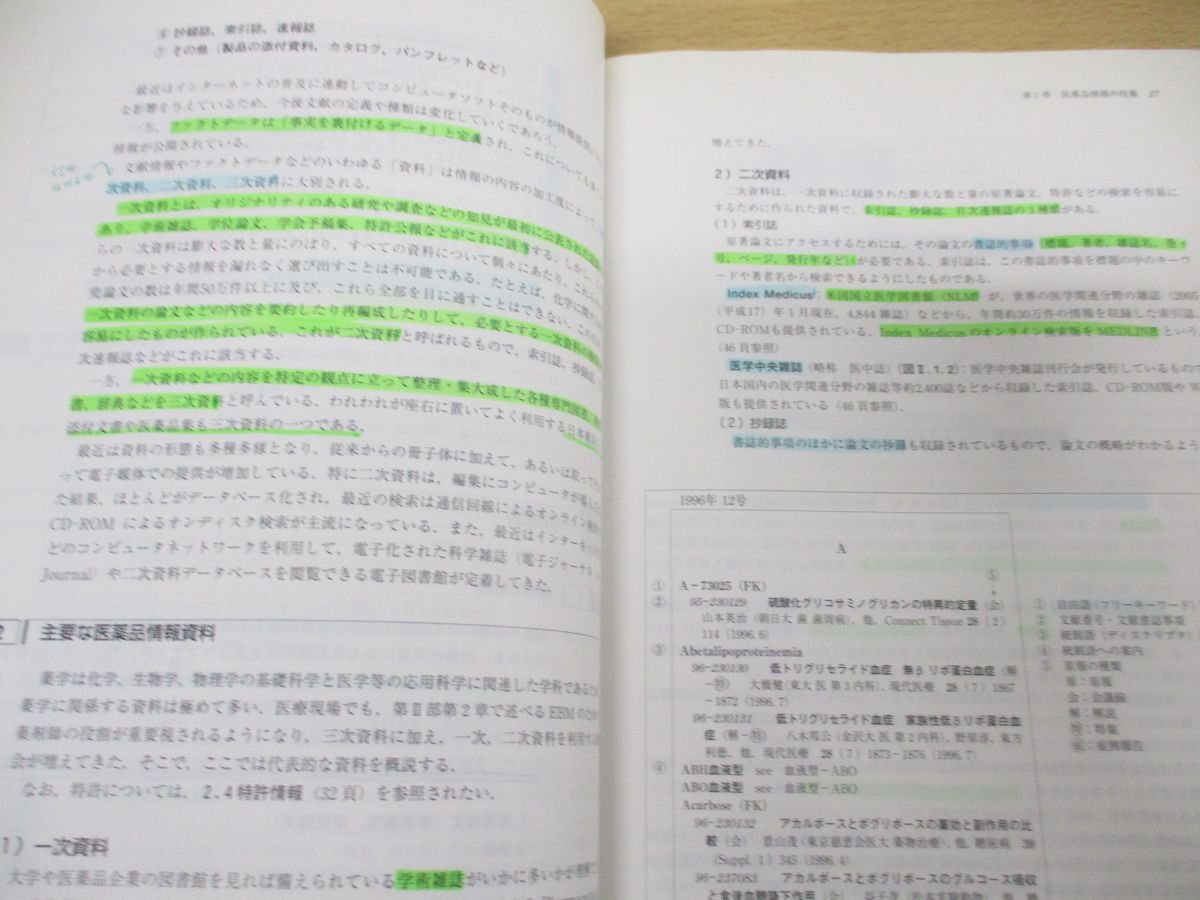 ⑥ 抄録誌、索引誌、速報誌
⑦ その他（製品の添付資料，カタログ，パンフレットなど）
最近はインターネットの普及に連動してコンピュータソフトそのものが情報
な影響を与えているため、今後文献の定義や種類は変化していくであろう．
一方，ファクトデータは「事実を裏付けるデータ」と定義され，これについても
情報が公開されている．
文献情報やファクトデータなどのいわゆる「資料」は情報の内容の加工度によって
次資料、二次資料、三次資料に大別される．
一次資料とは，オリジナリティのある研究や調査などの知見が最初に公表された
あり，学術雑誌，学位論文，学会予稿集，特許公報などがこれに該当する．しかし
らの一次資料は膨大な数と量にのぼり，すべての資料について個々にあたり，これらの
から必要とする情報を漏れなく選び出すことは不可能である．たとえば，化学に関する
究論文の数は年間50万件以上に及び，これら全部を目に通すことはできない．このため
一次資料の論文などの内容を要約したり再編成したりして，必要とする一次資料の
容易にしたものが作られている．これが二次資料と呼ばれるもので，索引誌，抄録誌，
次速報誌などがこれに該当する．
一方，一次資料などの内容を特定の観点に立って整理・集大成した各種専門図書，
書，辞典などを三次資料と呼んでいる．われわれが座右に置いてよく利用する日本
添付文書や医薬品集も三次資料の一つである．
最近は資料の形態も多種多様となり，従来からの冊子体に加えて，あるいは取って
って電子媒体での提供が増加している．特に二次資料は，編集にコンピュータが
た結果，ほとんどがデータベース化され，最近の検索は通信回線によるオンライン
CD-ROM によるオンディスク検索が主流になっている．また，最近はインターネット
どのコンピュータネットワークを利用して，電子化された科学雑誌（電子ジャーナル
Journal）や二次資料データベースを閲覧できる電子図書館が定着してきた．
2 主要な医薬品情報資料
薬学は化学，生物学，物理学の基礎科学と医学等の応用科学に関連した学科であるため
薬学に関係する資料は極めて多い．医療現場でも，第Ⅱ部第2章で述べるEBMのため
薬剤師の役割が重要視されるようになり，三次資料に加え，一次，二次資料を利用する
会が増えてきた．そこで，ここでは代表的な資料を概説する．
なお，特許については，2.4特許情報（32頁）を参照されたい．
1）一次資料
大学や医薬品企業の図書館を見れば備えられている学術雑誌がいかに多いかが
第1章 医薬品情報の収集 27
増えてきた．
2）二次資料
二次資料は，一次資料に収録された膨大な数と量の原著論文，特許などの検索を容易に
するために作られた資料で，索引誌，抄録誌，目次速報誌の3種類がある．
（1）索引誌
原著論文にアクセスするためには，その論文の書誌的事項（標題，著者，雑誌名，巻，
号，ページ，発行年など）が必要である．索引誌は，この書誌的事項を標題の中のキーワ
ードや著者名から検索できるようにしたものである．
Index Medicus：米国国立医学図書館（NLM）が，世界の医学関連分野の雑誌（2005
（平成17）年1月現在，4,844雑誌）などから，年間約30万件の情報を収録した索引誌．
CD-ROMも提供されている．Index Medicusのオンライン検索版をMEDLINEという
（46頁参照）
医学中央雑誌（略称 医中誌）（図Ⅱ.1.2）：医学中央雑誌刊行会が発行しているもので
日本国内の医学関連分野の雑誌等約2,400誌などから収録した索引誌．CD-ROM版や
版も提供されている（46頁参照）．
（2）抄録誌
書誌的事項のほかに論文の抄録も収録されているもので，論文の概略がわかるよう
1996年 12号
A
⑤
① A－73025（FK）
② 95-230129 硫酸化グリコサミノグリカンの特異的定量（会）
山本英治（朝日大 歯 歯周病），他．Connect Tissue 28（2）
114（1996.6）
③ Abetalipoproteinemia
96-230130 低トリグリセライド血症 無βリポ蛋白血症（解
－特） 大橋健（東大 医 第3内科）．現代医療 28（7）1867
－1872（1996.7）
96-230131 低トリグリセライド血症 家族性低βリポ蛋白血
症（解－特） 八木邦公（金沢大 医 第2内科），野原淳，東方
利徳，他．現代医療 28（7）1873－1876（1996.7）
④ ABH血液型 see 血液型－ABO
ABO血液型 see 血液型－ABO
Acarbose（FK）
96-230132 アカルボースとボグリボースの薬効と副作用の比
較（会） 景山茂（東京慈恵会医大 薬物治療），他．糖尿病 39
（Suppl. 1）345（1996.4）
96-237083 アカルボースとボグリボースのグルコース吸収
と食後血糖降下作用（会）
① 自由語（フリーキーワード）
② 文献番号・文献書誌事項
③ 統制語（ディスクリプタ）
④ 統制語への案内
⑤ 原報の種類
原：原報
会：会議録
解：解説
特：特集
症：症例報告